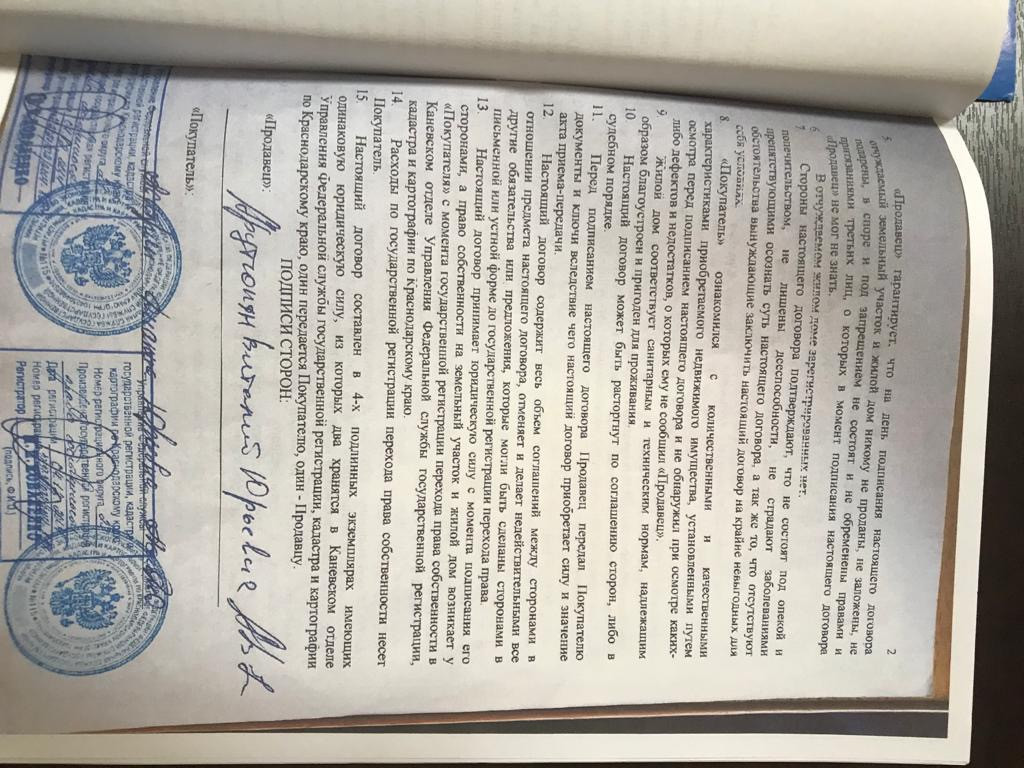 2
5. «Продавец» гарантирует, что на день подписания настоящего договора
отчуждаемый земельный участок и жилой дом никому не проданы, не заложены, не
подарены, в споре и под запрещением не состоят и не обременены правами и
притязаниями третьих лиц, о которых в момент подписания настоящего договора
«Продавец» не мог не знать.
6. В отчуждаемом жилом доме зарегистрированных нет.
7. Стороны настоящего договора подтверждают, что не состоят под опекой и
попечительством, не лишены дееспособности, не страдают заболеваниями
препятствующими осознать суть настоящего договора, а так же то, что отсутствуют
обстоятельства вынуждающие заключить настоящий договор на крайне невыгодных для
себя условиях.
8. «Покупатель» ознакомился с количественными и качественными
характеристиками приобретаемого недвижимого имущества, установленными путем
осмотра перед подписанием настоящего договора и не обнаружил при осмотре каких-
либо дефектов и недостатков, о которых ему не сообщил «Продавец».
9. Жилой дом соответствует санитарным и техническим нормам, надлежащим
образом благоустроен и пригоден для проживания.
10 Настоящий договор может быть расторгнут по соглашению сторон, либо в
судебном порядке.
11. Перед подписанием настоящего договора Продавец передал Покупателю
документы и ключи вследствие чего настоящий договор приобретает силу и значение
акта приема-передачи.
12. Настоящий договор содержит весь объем соглашений между сторонами в
отношении предмета настоящего договора, отменяет и делает недействительными все
другие обязательства или предложения, которые могли быть сделаны сторонами в
письменной или устной форме до государственной регистрации перехода права.
13. Настоящий договор принимает юридическую силу с момента подписания его
сторонами, а право собственности на земельный участок и жилой дом возникает у
«Покупателя» с момента государственной регистрации перехода права собственности в
Каневском отделе Управления Федеральной службы государственной регистрации,
кадастра и картографии по Краснодарскому краю.
14. Расходы по государственной регистрации перехода права собственности несет
Покупатель.
15. Настоящий договор составлен в 4-х подлинных экземплярах имеющих
одинаковую юридическую силу, из которых два хранятся в Каневском отделе
Управления Федеральной службы государственной регистрации, кадастра и картографии
по Краснодарскому краю, один передается Покупателю, один - Продавцу.
ПОДПИСИ СТОРОН:
«Продавец»:
Арутюнян Виталий Юрьевич
«Покупатель»:
Управление Федеральной службы
государственной регистрации, кадастра и
картографии по Краснодарскому краю
Номер регистрационного округа
Произведена государственная регистрация
Дата регистрации
Номер регистрации
Регистратор
(подпись, Ф.И.О.)